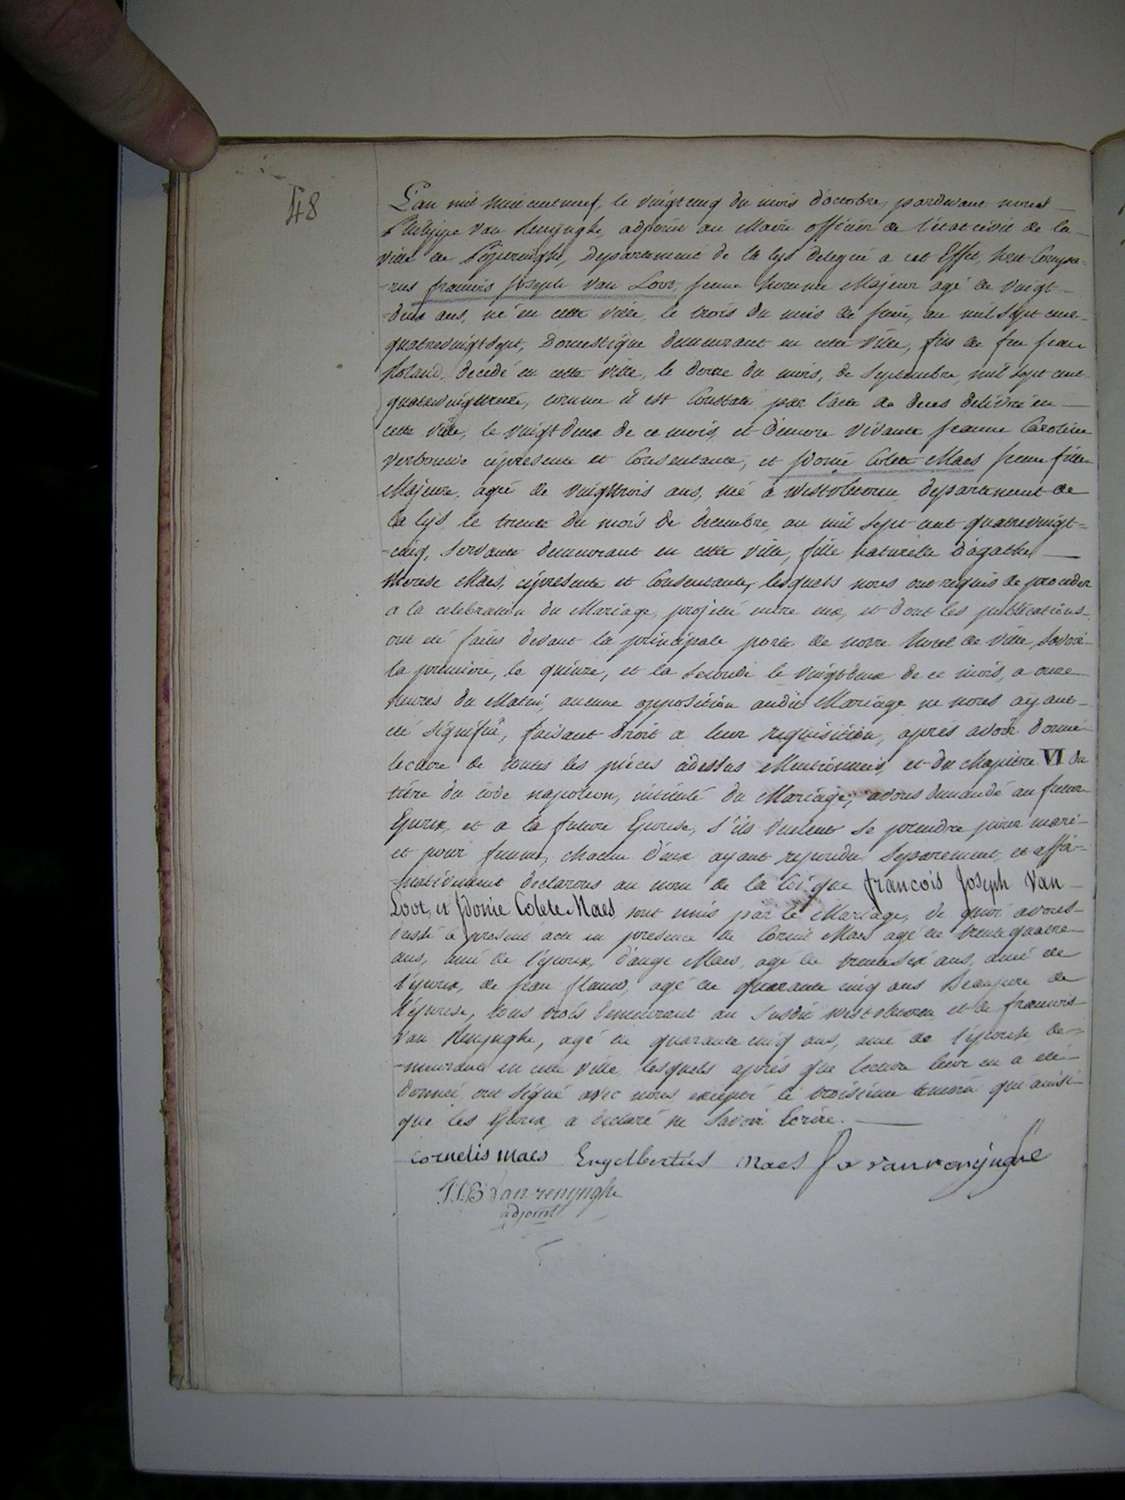 48
L'an mil huit cent neuf, le vingt cinq du mois d'octobre, pardevant nous
Philippe Van Renynghe, adjoint au Maire officier de l'état civil de la
ville de Poperinghe, Departement de la Lys delegué a cet Effet, sont Compa-
-rus francois Joseph Van Loot, jeune homme Majeur agé de vingt
deux ans, né en cette ville, le trois du mois de juin, an mil sept cent
quatrevingt sept, Domestique demeurant en cette ville, fils de feu jean
Roland, decedé en cette ville, le douze du mois, de Septembre, mil sept cent
quatrevingt, comme il est Constaté par l'acte de deces delivré en
cette ville, le vingt deux de ce mois, et d'encore vivante jeanne Caroline
cipresente et Consentante, et Idonie Colete Maes jeune fille
Majeure, agée de vingt trois ans, née à Westvleteren departement de
la Lys, le trente du mois de decembre, an mil sept cent quatrevingt-
-cinq, servante demeurant en cette ville, fille naturelle d'agathe
therese Maes, cipresente et Consentante, lesquels nous ont requis de proceder
a la celebration du Mariage, projetté entre eux, et dont les publications
ont été faites devant la principale porte de notre hotel de ville, savoir
la premiere, le quinze, et la seconde le vingt deux de ce mois, a onze
heures du Matin, aucune opposition audit Mariage ne nous ayant
été signifié, faisant droit a leur requisition, après avoir donné
lecture de toutes les pièces cidessus Mentionnées, et du chapitre VI du
titre du code napoleon, intitulé du Mariage, avons demandé au futur
Epoux, et a la future Epouse, s'ils veulent se prendre pour mari
et pour femme, chacun d'eux ayant repondu Separement, et affir-
-mativement declarons au nom de la loi que francois Joseph Van
Loot, et Idonie Colete Maes sont unis par le Mariage, de quoi avons
dressé le present acte en presence de Corneil Maes agé de trente quatre
ans, ami de l'epoux, d'ange Maes, agé de trente six ans, ami de
l'epoux, de jean, agé de quarante cinq ans Beaupere de
l'épouse, tous trois demeurant au susdit Westvleteren et de francois
Van Renynghe, agé de quarante cinq ans, ami de l'épouse, de-
-meurant en cette ville lesquels après que lecture leur en a été
donnée, ont signé avec nous excepté le troisième temoin qui ainsi
que les Epoux, a declaré ne savoir Ecrire.
cornelis maes Engelbertus maes f van renijnghe
P.J.B Van renynghe
adjoint